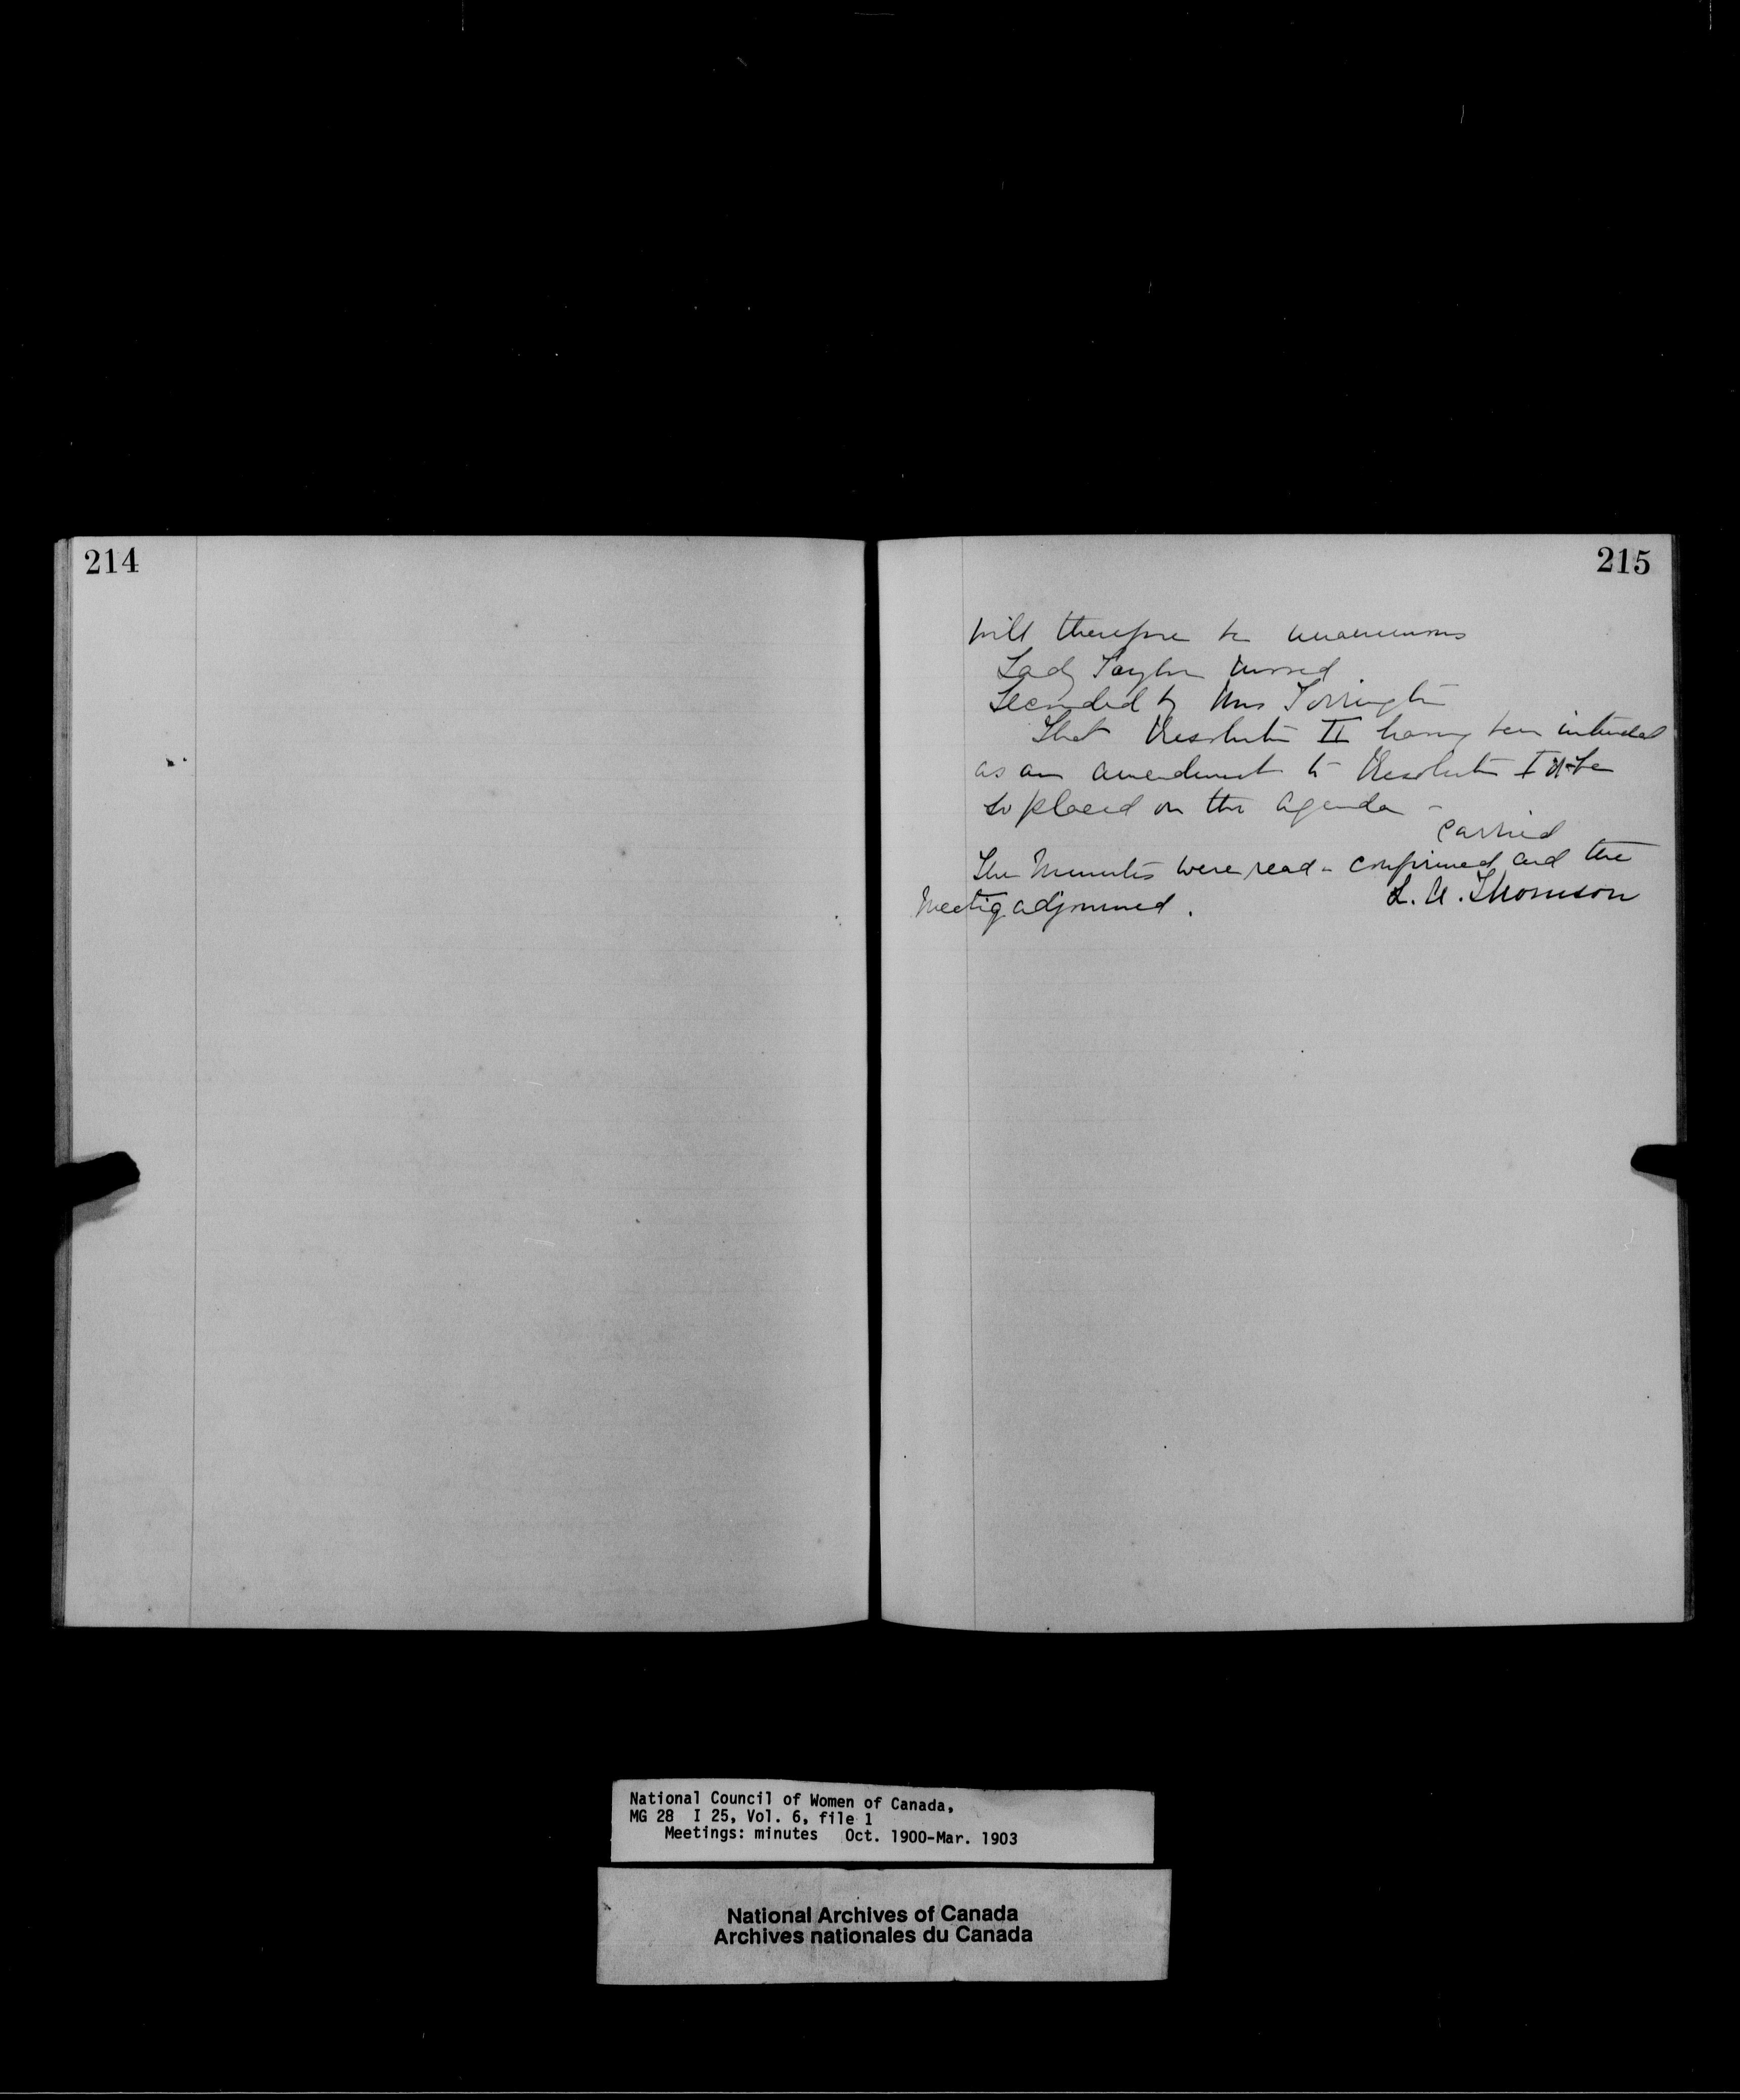 214
215
will therefore be unanimous
Lady Taylor moved
Seconded by Mrs Torrington
That Resolution II having been intended
as an amendment to Resolution I it be
so placed on the Agenda -
carried
The Minutes were read - confirmed and the
Meeting adjourned.
L. A. Thomson
National Council of Women of Canada,
MG 28 I 25, Vol. 6, file 1
Meetings: minutes Oct. 1900-Mar. 1903
National Archives of Canada
Archives nationales du Canada